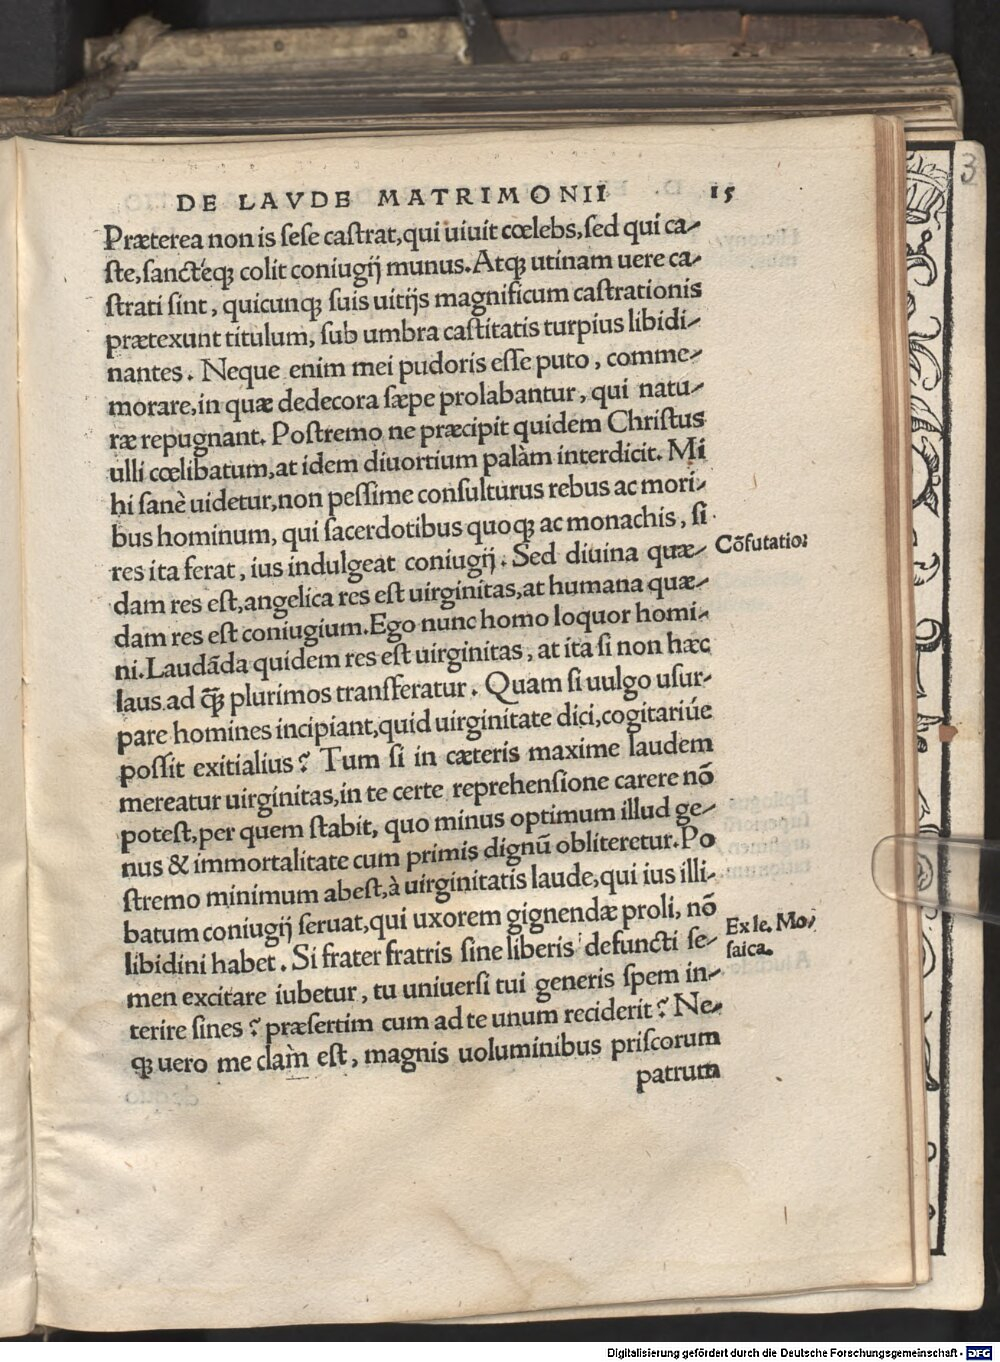 DE LAVDE MATRIMONII 15
Præterea non is ſeſe caſtrat,qui uiuit cœlebs,ſed qui ca-
ſte,ſanctéqꝫ colit coniugij munus.Atqꝫ utinam uere ca-
ſtrati ſint, quicunqꝫ ſuis uitijs magnificum caſtrationis
prætexunt titulum, ſub umbra caſtitatis turpius libidi-
nantes. Neque enim mei pudoris eſſe puto, comme-
morare,in quæ dedecora ſæpe prolabantur, qui natu-
ræ repugnant. Poſtremo ne præcipit quidem Chriſtus
ulli cœlibatum,at idem diuortium palàm interdicit. Mi
hi ſanè uidetur,non peſſime conſulturus rebus ac mori-
bus hominum, qui ſacerdotibus quoqꝫ ac monachis, ſi
res ita ferat, ius indulgeat coniugij. Sed diuina quæ-
Cõfutatio:
dam res eſt,angelica res eſt uirginitas,at humana quæ-
dam res eſt coniugium.Ego nunc homo loquor homi-
ni.Laudãda quidem res eſt uirginitas, at ita ſi non hæc
laus ad q̃ꝫ plurimos transferatur. Quam ſi uulgo uſur-
pare homines incipiant,quid uirginitate dici,cogitariúe
poſſit exitialius? Tum ſi in cæteris maxime laudem
mereatur uirginitas,in te certe reprehenſione carere nõ
poteſt,per quem ſtabit, quo minus optimum illud ge-
nus & immortalitate cum primis dignũ obliteretur.Po
ſtremo minimum abeſt,à uirginitatis laude,qui ius illi-
batum coniugij ſeruat,qui uxorem gignendæ proli, nõ
libidini habet. Si frater fratris ſine liberis defuncti ſe-
Ex le. Mo-
ſaica.
men excitare iubetur, tu uniuerſi tui generis ſpem in-
terire ſines? præſertim cum ad te unum reciderit? Ne-
qꝫ uero me clam̀ eſt, magnis uoluminibus priſcorum
patrum
3
Digitalisierung gefördert durch die Deutsche Forschungsgemeinschaft - DFG